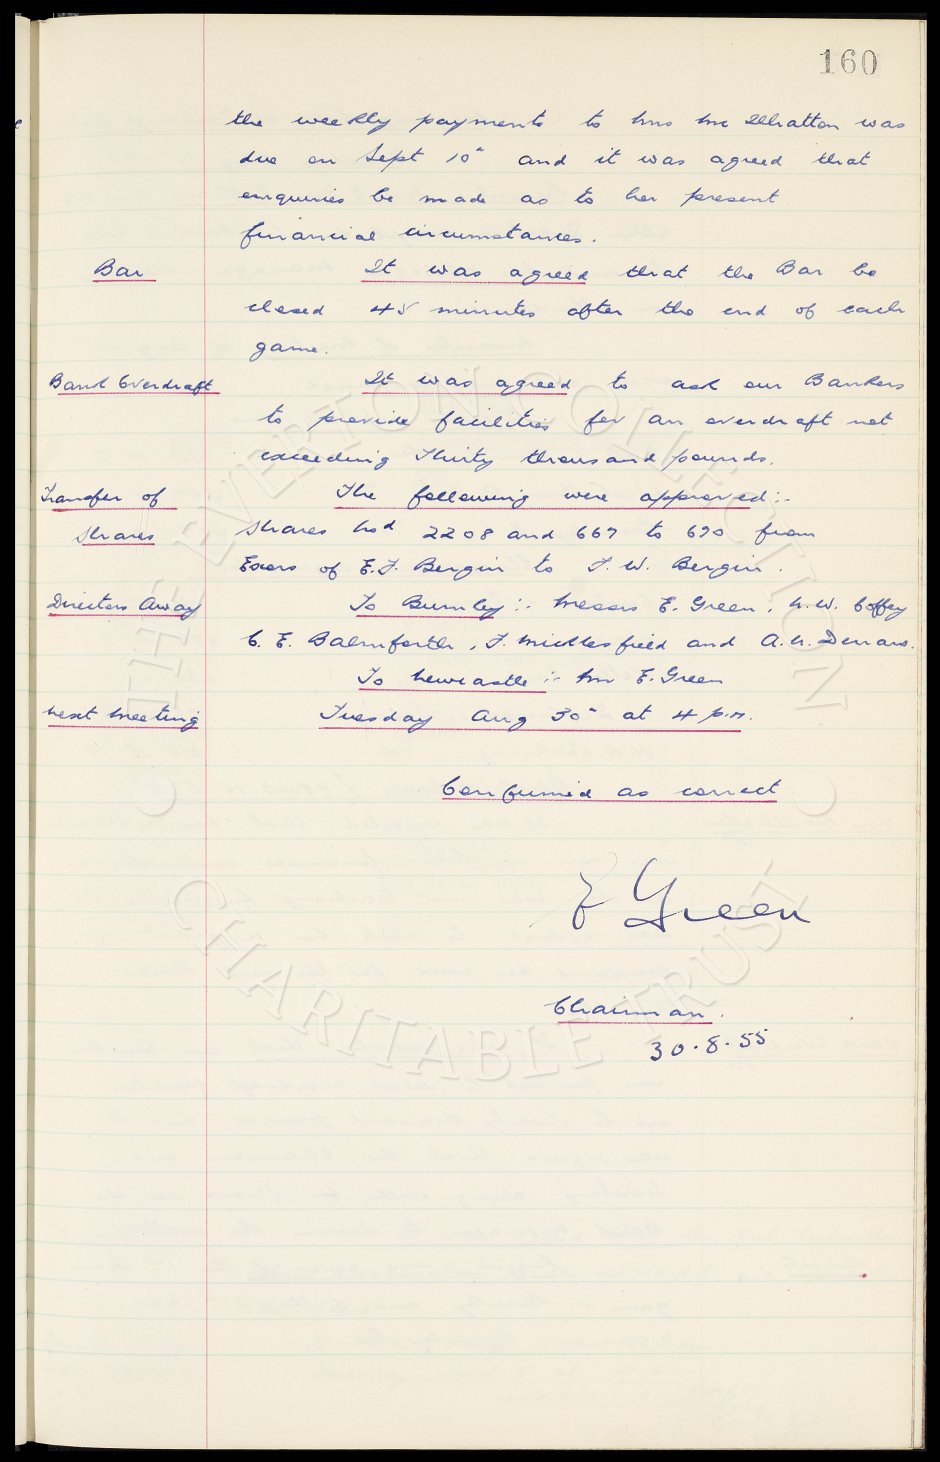 160
the weekly payments to Mrs Mc Whatton was
due on Sept 10" and it was agreed that
enquiries be made as to her present
financial circumstances.
Bar It was agreed that the Bar be
closed 45 minutes after the end of each
game.
Bank Overdraft It was agreed to ask our Bankers
to provide facilities for an overdraft not
exceeding Thirty thousand pounds.
Transfer of The following were approved :-
Shares Shares Nod 2208 and 667 to 670 from
Exors of E.J. Bergin to J. W. Bergin.
Directors Away To Burnley :- Messrs E. Green, N.W. Coffey
C. E. Balmforth, J. Micklesfield and A. N. Denaro.
To Newcastle :- Mr E. Green
Next Meeting Tuesday Aug 30" at 4 p.m.
Confirmed as correct
E Green
Chairman.
30.8.55
THE EVERTON COLLECTION
CHARITABLE TRUST